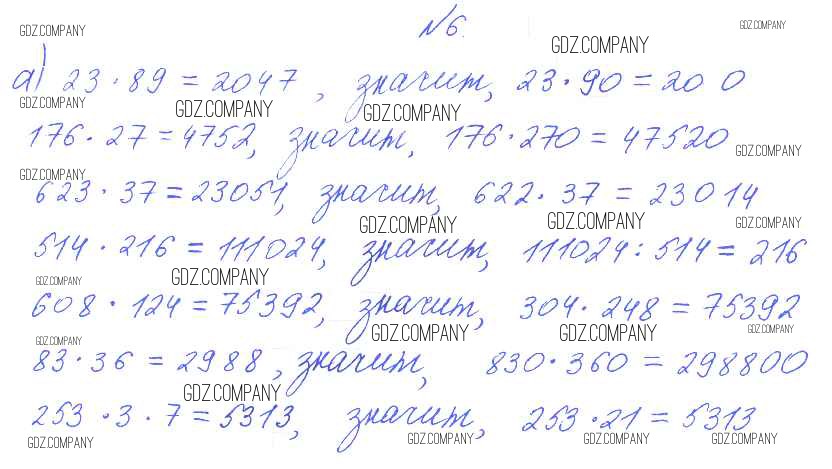 GDZ.COMPANY №6. GDZ.COMPANY GDZ.COMPANY
а) 23 · 89 = 2047, значит, 23 · 90 = 20 0
GDZ.COMPANY GDZ.COMPANY GDZ.COMPANY
176 · 27 = 4752, значит, 176 · 270 = 47520
GDZ.COMPANY GDZ.COMPANY
623 · 37 = 23051, значит, 622 · 37 = 23014
GDZ.COMPANY GDZ.COMPANY GDZ.COMPANY
514 · 216 = 111024, значит, 111024 : 514 = 216
GDZ.COMPANY GDZ.COMPANY
608 · 124 = 75392, значит, 304 · 248 = 75392
GDZ.COMPANY GDZ.COMPANY GDZ.COMPANY GDZ.COMPANY
83 · 36 = 2988, значит, 830 · 360 = 298800
GDZ.COMPANY
253 · 3 · 7 = 5313, значит, 253 · 21 = 5313
GDZ.COMPANY GDZ.COMPANY GDZ.COMPANY GDZ.COMPANY